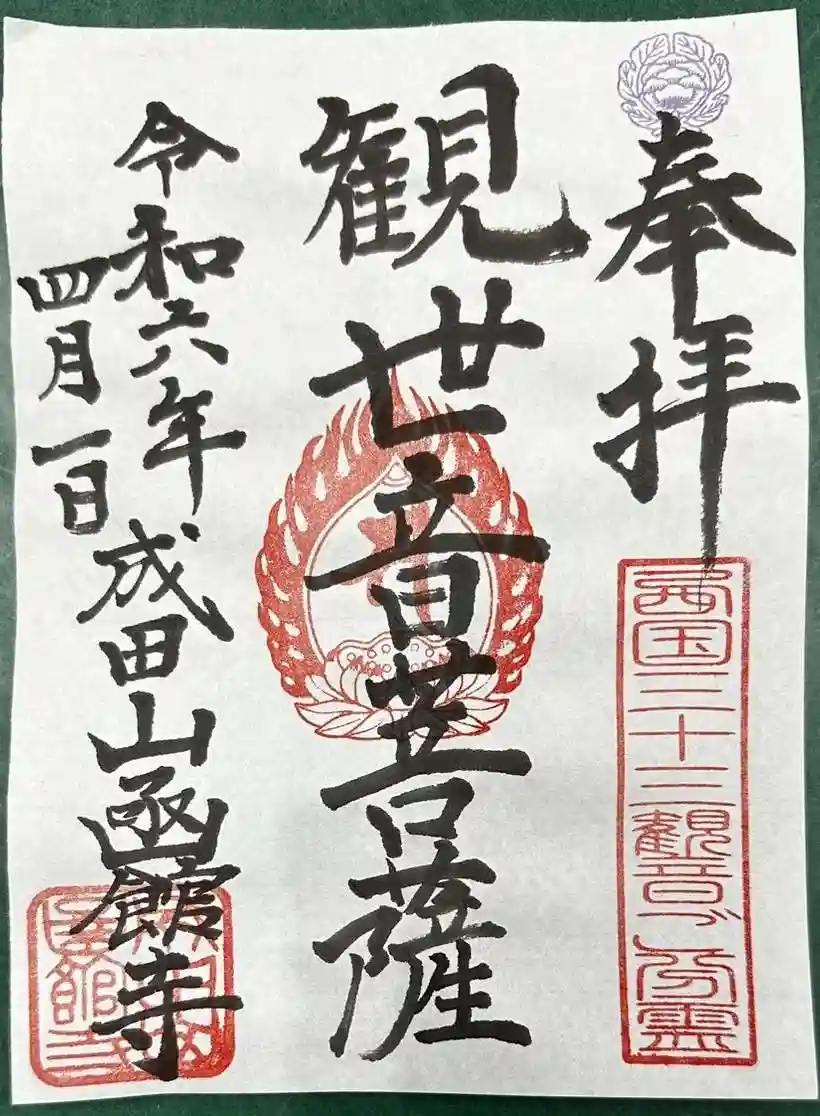 奉拝
西国三十三観音
観世音菩薩
令和六年
四月一日
成田山函館寺